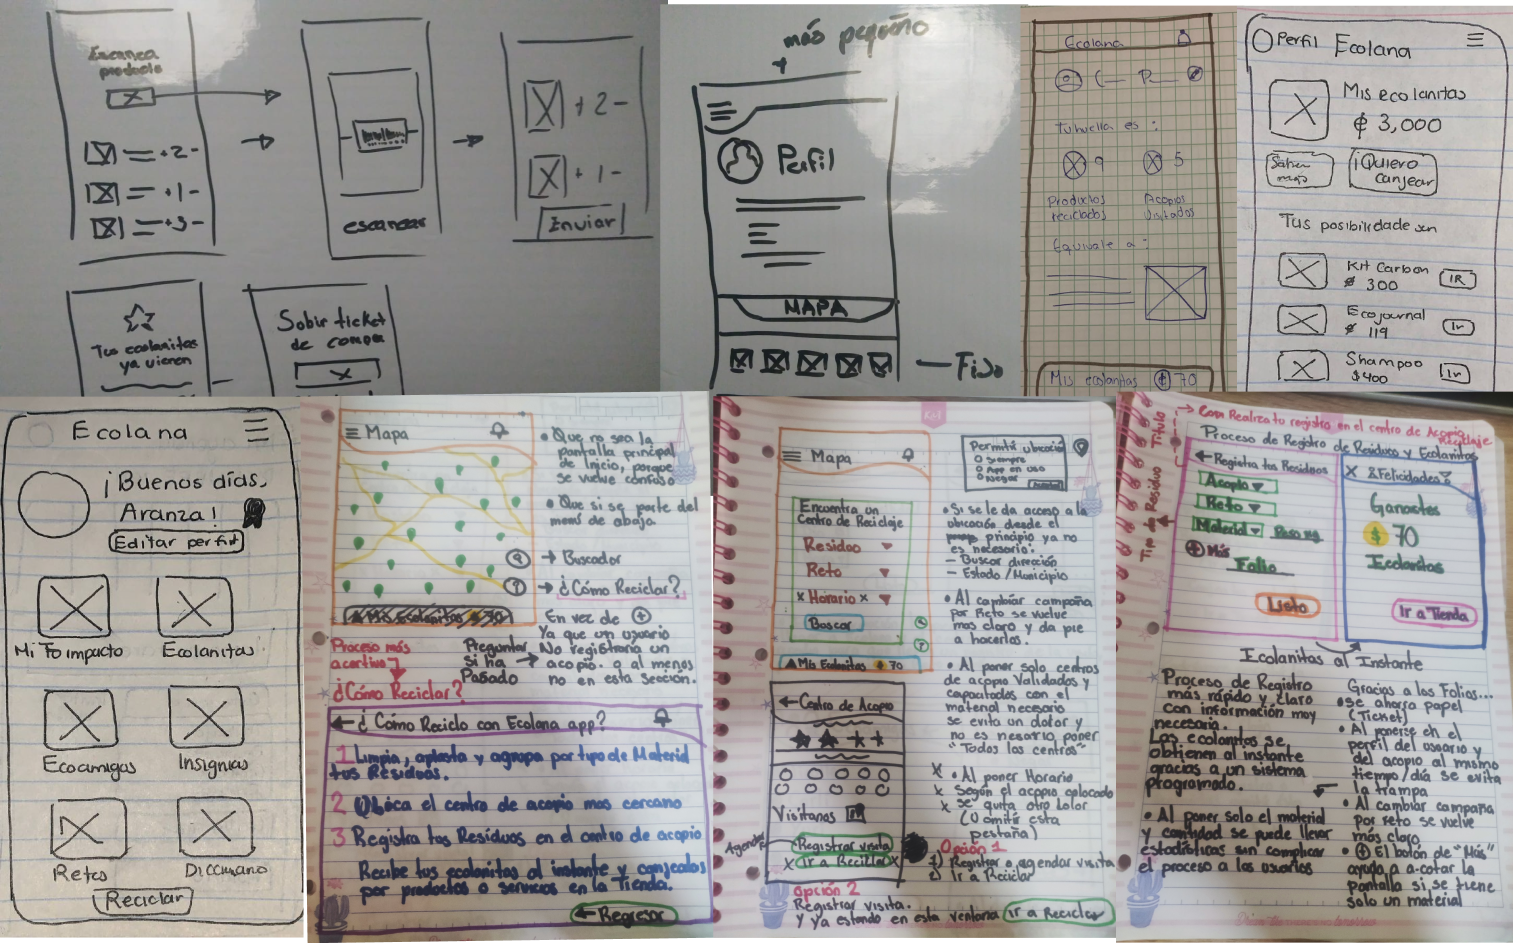 Escanea
producto
+2-
+1-
+3-
escanear
+2-
+1-
Enviar
Tus ecolanitas
ya vienen
Subir ticket
de compra
más pequeño
Perfil
MAPA
Fijo
Ecolana
Tu huella es :
9
5
Productos
reciclados
Acopios
visitados
Equivale a :
Mis ecolanitas $ 70
Perfil Ecolana
Mis ecolanitas
₡ 3,000
Saber
más
¡Quiero
canjear
Tus posibilidade son
Kit Carbon
$ 300
IR
Ecojournal
$ 119
Ir
Shampoo
$400
Ir
Ecolana
¡Buenos días,
Aranza!
Editar perfil
Mi impacto
Ecolanitas
Ecoamigas
Insignias
Retos
Diccinario
Reciclar
Mapa
• Que no sea la
pantalla principal
de Inicio, porque
se vuelve confuso
• Que si se parte del
menú de abajo.
→ Buscador
? → ¿Cómo Reciclar?
Mis Ecolanitas 70
En vez de +
Ya que un usuario
No registraria un
acopio. o al menos
no en esta sección.
Proceso más
acertivo
Preguntar
si ha
Pasado
¿Cómo Reciclar?
← ¿Cómo Reciclo con Ecolana app?
1 Limpia, aplasta y agrupa por tipo de Material
tus Residuos.
2 Ubica el centro de acopio mas cercano
3 Registra tus Residuos en el centro de acopio
Recibe tus ecolanitas al instante y canjealos
por productos o servicios en la Tienda.
← Regresar
Mapa
Permitir ubicación
Siempre
App en uso
Negar
Encuentra un
Centro de Reciclaje
Residuo
Reto
x Horario x
Buscar
Mis Ecolanitas $ 70
• Si se le da acceso a la
ubicación desde el
principio ya no
es necesario:
— Buscar dirección
— Estado / Municipio
• Al cambiar campaña
por Reto se vuelve
mas claro y da pie
a hacerlos.
• Al poner solo centros
de acopio Validados y
capacitados con el
material necesario
se evita un dolor y
no es nesario poner
"Todos los centros"
x • Al poner Horario
x según el acopio colocado
x se quita otro dolor
(U omitir esta
pestaña)
← Centro de Acopio
Visitanos
Agendar
Registrar visita
x Ir a Reciclar x
Opción 1
1) Registrar o agendar visita
2) Ir a Reciclar
opción 2
Registrar visita.
y ya estando en esta ventana Ir a Reciclar
Título
Tipo de Residuo
Proceso de Registro de Residuo y Ecolanitas
← Registra tus Residuos
Acopio
Reto
Material
+ Más
Folio
Listo
x ¡Felicidades!
Ganastes
$ 70
Ecolanitas
Ir a Tienda
Ecolanitas al Instante
• Proceso de Registro
más rápido y claro
con información muy
necesaria.
Las ecolanitas se
obtienen al instante
gracias a un sistema
programado.
• Al poner solo el material
y cantidad se puede llevar
estadísticas sin complicar
el proceso a los usuarios
Gracias a los Folios...
• se ahorra papel
(Ticket)
• Al ponerse en el
perfil del usuario y
del acopio al mismo
tiempo/día se evita
la trampa
• Al cambiar campaña
por reto se vuelve
más claro.
• + El botón de "Más"
ayuda a a-cotar la
pantalla si se tiene
solo un material